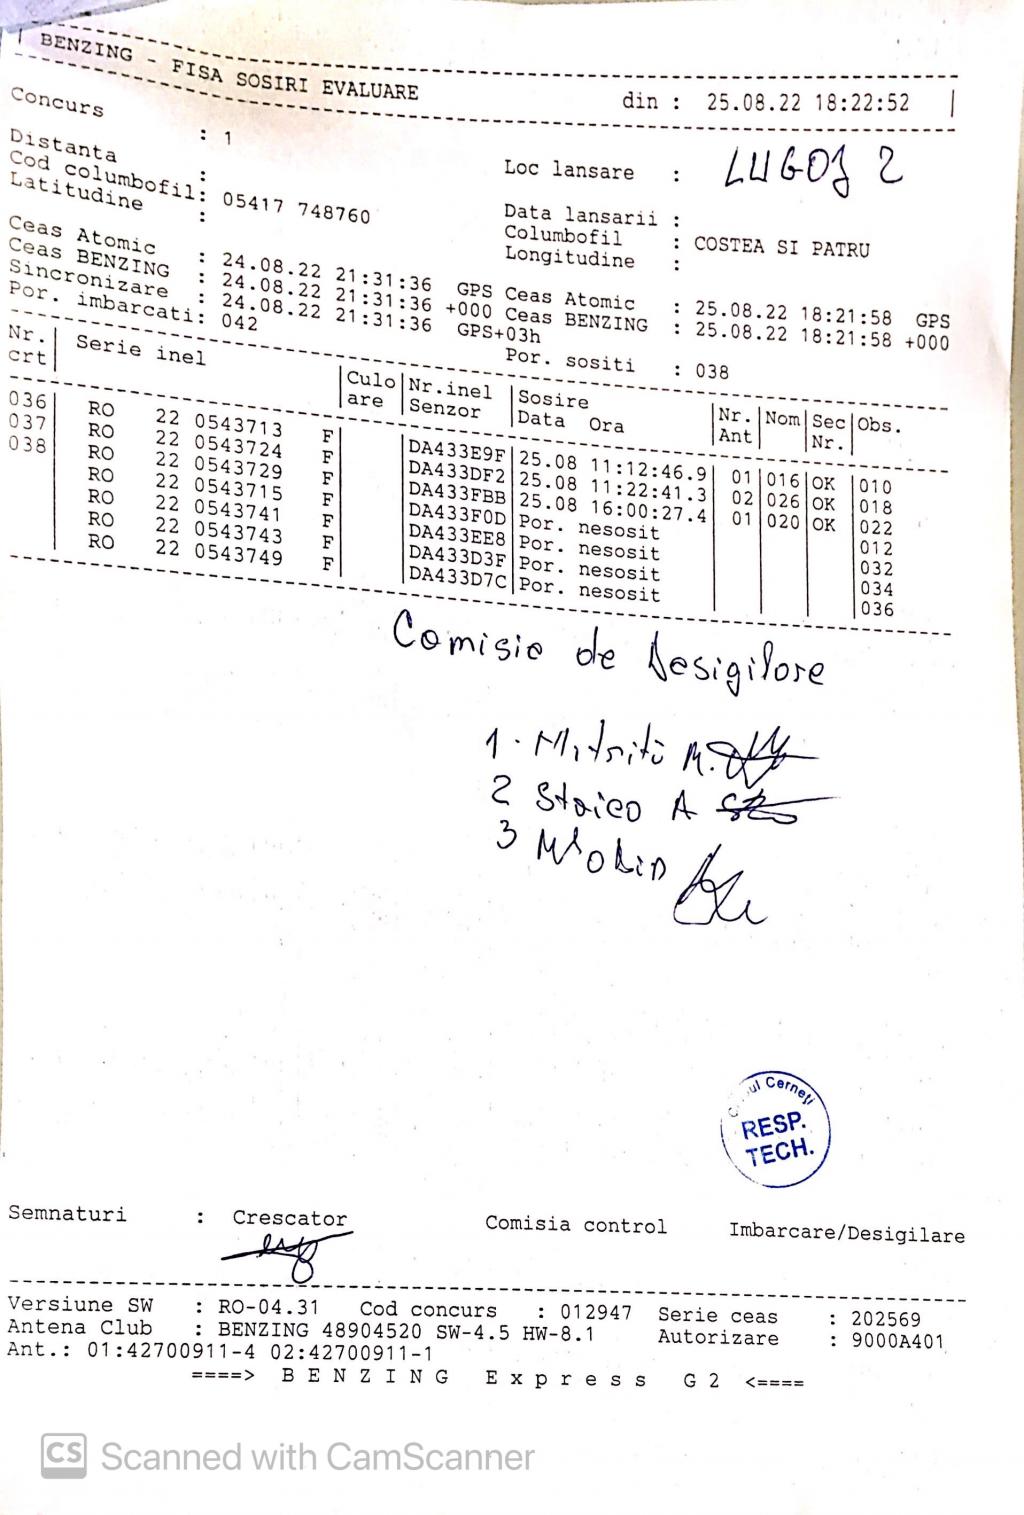 BENZING - FISA SOSIRI EVALUARE din : 25.08.22 18:22:52
Concurs : 1 Loc lansare : LUGOJ 2
Distanta : Data lansarii :
Cod columbofil: 05417 748760 Columbofil : COSTEA SI PATRU
Latitudine : Longitudine :
Ceas Atomic : 24.08.22 21:31:36 GPS Ceas Atomic : 25.08.22 18:21:58 GPS
Ceas BENZING : 24.08.22 21:31:36 +000 Ceas BENZING : 25.08.22 18:21:58 +000
Sincronizare : 24.08.22 21:31:36 GPS+03h
Por. imbarcati: 042 Por. sositi : 038
Nr. Serie inel Culo Nr.inel Sosire Nr. Nom Sec Obs.
crt are Senzor Data Ora Ant Nr.
036 RO 22 0543713 F DA433E9F 25.08 11:12:46.9 01 016 OK 010
037 RO 22 0543724 F DA433DF2 25.08 11:22:41.3 02 026 OK 018
038 RO 22 0543729 F DA433FBB 25.08 16:00:27.4 01 020 OK 022
RO 22 0543715 F DA433F0D Por. nesosit 012
RO 22 0543741 F DA433EE8 Por. nesosit 032
RO 22 0543743 F DA433D3F Por. nesosit 034
RO 22 0543749 F DA433D7C Por. nesosit 036
Comisie de Desigilare
1. M.
2 Staicu A
3
Cerneți
RESP.
TECH.
Semnaturi : Crescator Comisia control Imbarcare/Desigilare
Versiune SW : RO-04.31 Cod concurs : 012947 Serie ceas : 202569
Antena Club : BENZING 48904520 SW-4.5 HW-8.1 Autorizare : 9000A401
Ant.: 01:42700911-4 02:42700911-1
====> B E N Z I N G E x p r e s s G 2 <====
CS Scanned with CamScanner